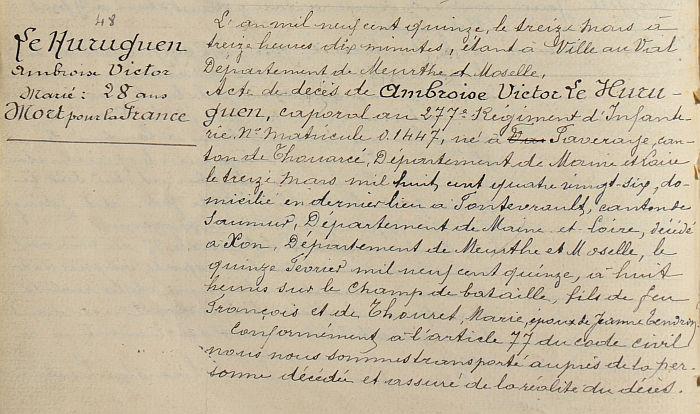 48
Le Huruguen
Ambroise Victor
Marié : 28 ans
Mort pour la France
L'an mil neuf cent quinze, le treize mars à
treize heures dix minutes, étant à Ville au Val
Département de Meurthe et Moselle,
Acte de décès de Ambroise Victor Le Huru-
guen, caporal au 277e Régiment d'Infante
rie. No Matricule 0.1447, né à Faveraye, can-
ton de Thouarcé, Département de Maine et Loire
le treize mars mil huit cent quatre vingt-six, do-
micilié en dernier lieu à Fontevrault, canton de
Saumur, Département de Maine et Loire, décédé
à Xon, Département de Meurthe et Moselle, le
quinze Février mil neuf cent quinze, à huit
heures sur le champ de bataille, fils de feu
François et de Thouret, Marie, époux de Jeanne Tendron
Conformément à l'article 77 du code civil
nous nous sommes transporté auprès de la per-
sonne décédée et assuré de la réalité du décès.